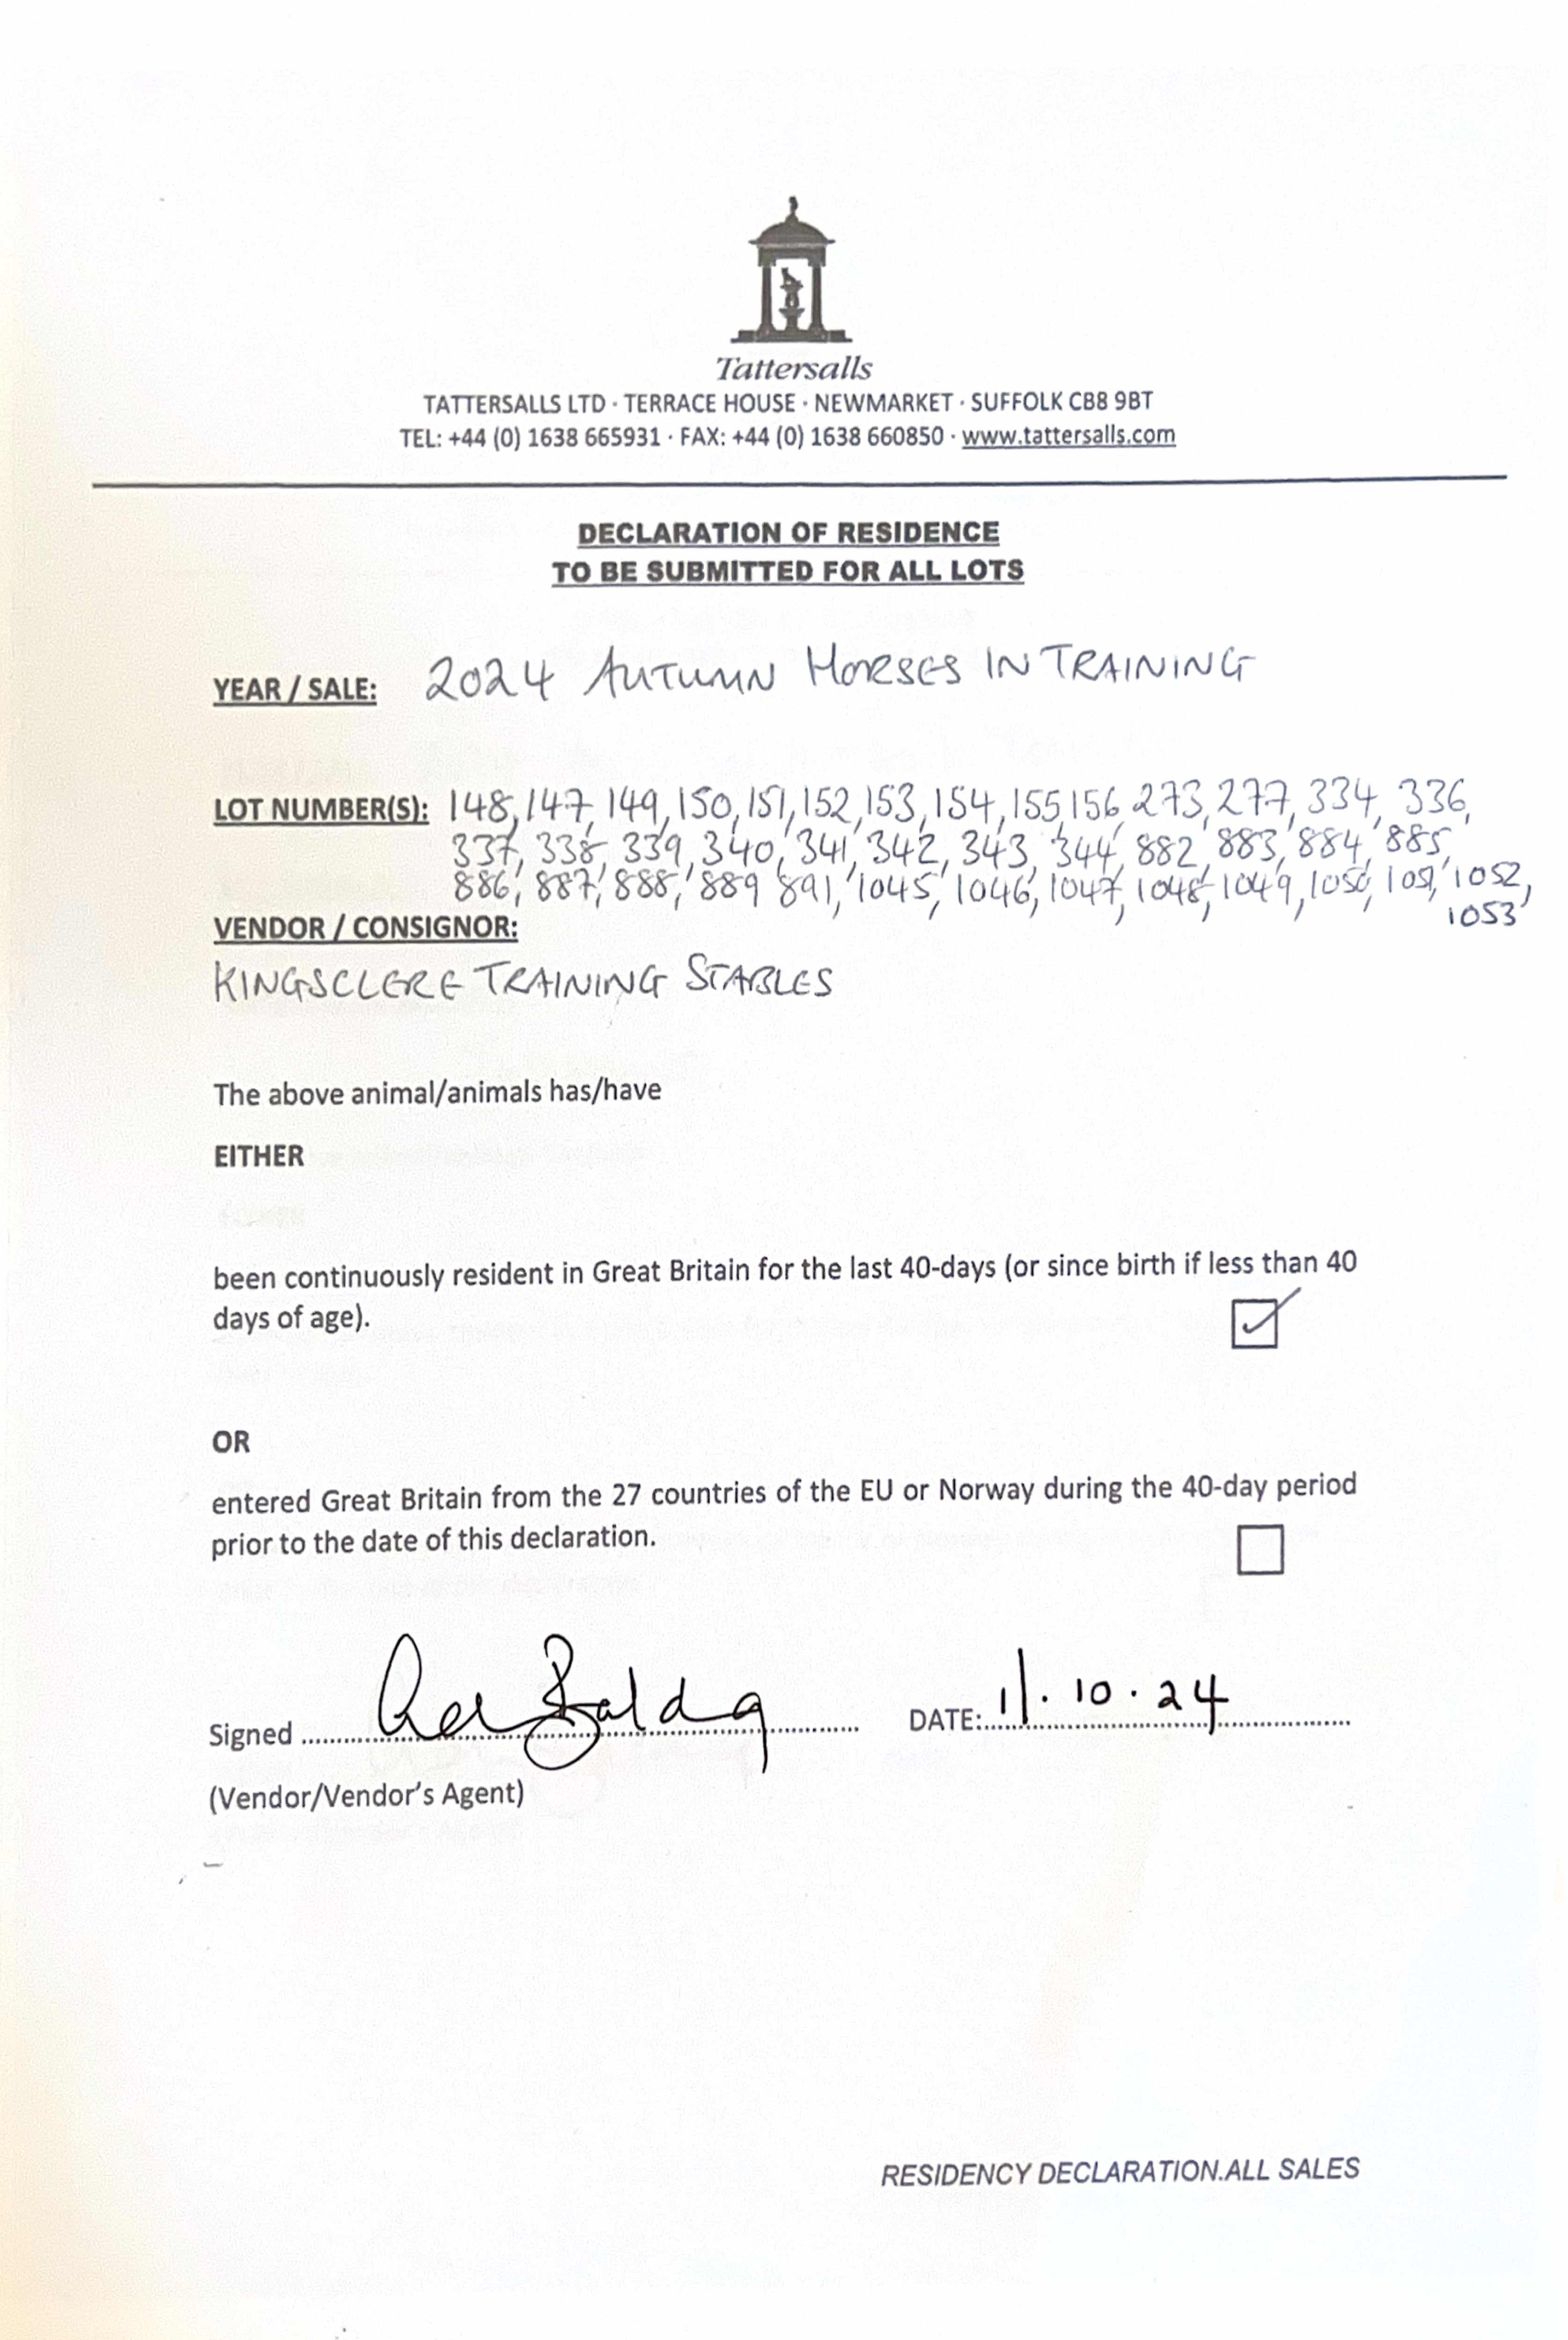 Tattersalls
TATTERSALLS LTD · TERRACE HOUSE · NEWMARKET · SUFFOLK CB8 9BT
TEL: +44 (0) 1638 665931 · FAX: +44 (0) 1638 660850 · www.tattersalls.com
DECLARATION OF RESIDENCE
TO BE SUBMITTED FOR ALL LOTS
YEAR / SALE: 2024 AUTUMN HORSES IN TRAINING
LOT NUMBER(S): 148, 147, 149, 150, 151, 152, 153, 154, 155, 156, 273, 277, 334, 336,
337, 338, 339, 340, 341, 342, 343, 344, 882, 883, 884, 885,
886, 887, 888, 889 891, 1045, 1046, 1047, 1048, 1049, 1050, 1051, 1052,
1053
VENDOR / CONSIGNOR:
KINGSCLERE TRAINING STABLES
The above animal/animals has/have
EITHER
been continuously resident in Great Britain for the last 40-days (or since birth if less than 40
days of age).
OR
entered Great Britain from the 27 countries of the EU or Norway during the 40-day period
prior to the date of this declaration.
Signed DATE: 11.10.24
(Vendor/Vendor's Agent)
RESIDENCY DECLARATION.ALL SALES